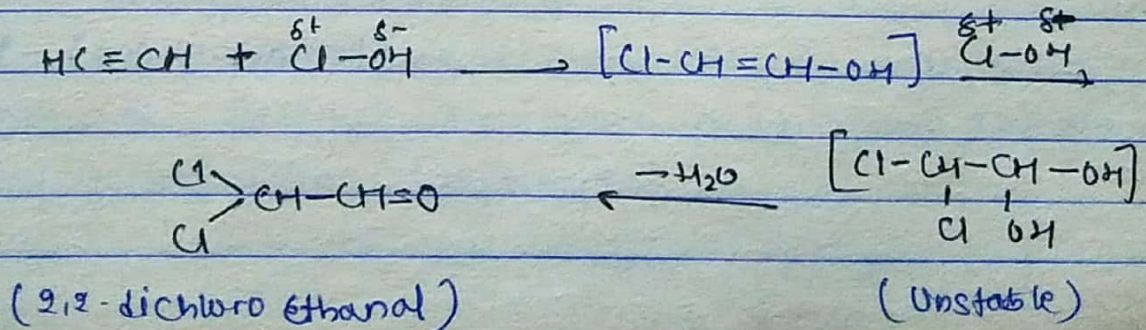 δ+ δ-
HC≡CH + Cl-OH ⟶ [Cl-CH=CH-OH] δ+ δ+ Cl-OH ⟶
Cl Cl >CH-CH=O ⟵ -H₂O [Cl-CH-CH-OH]
Cl OH
(2,2-dichloro Ethanal) (Unstable)